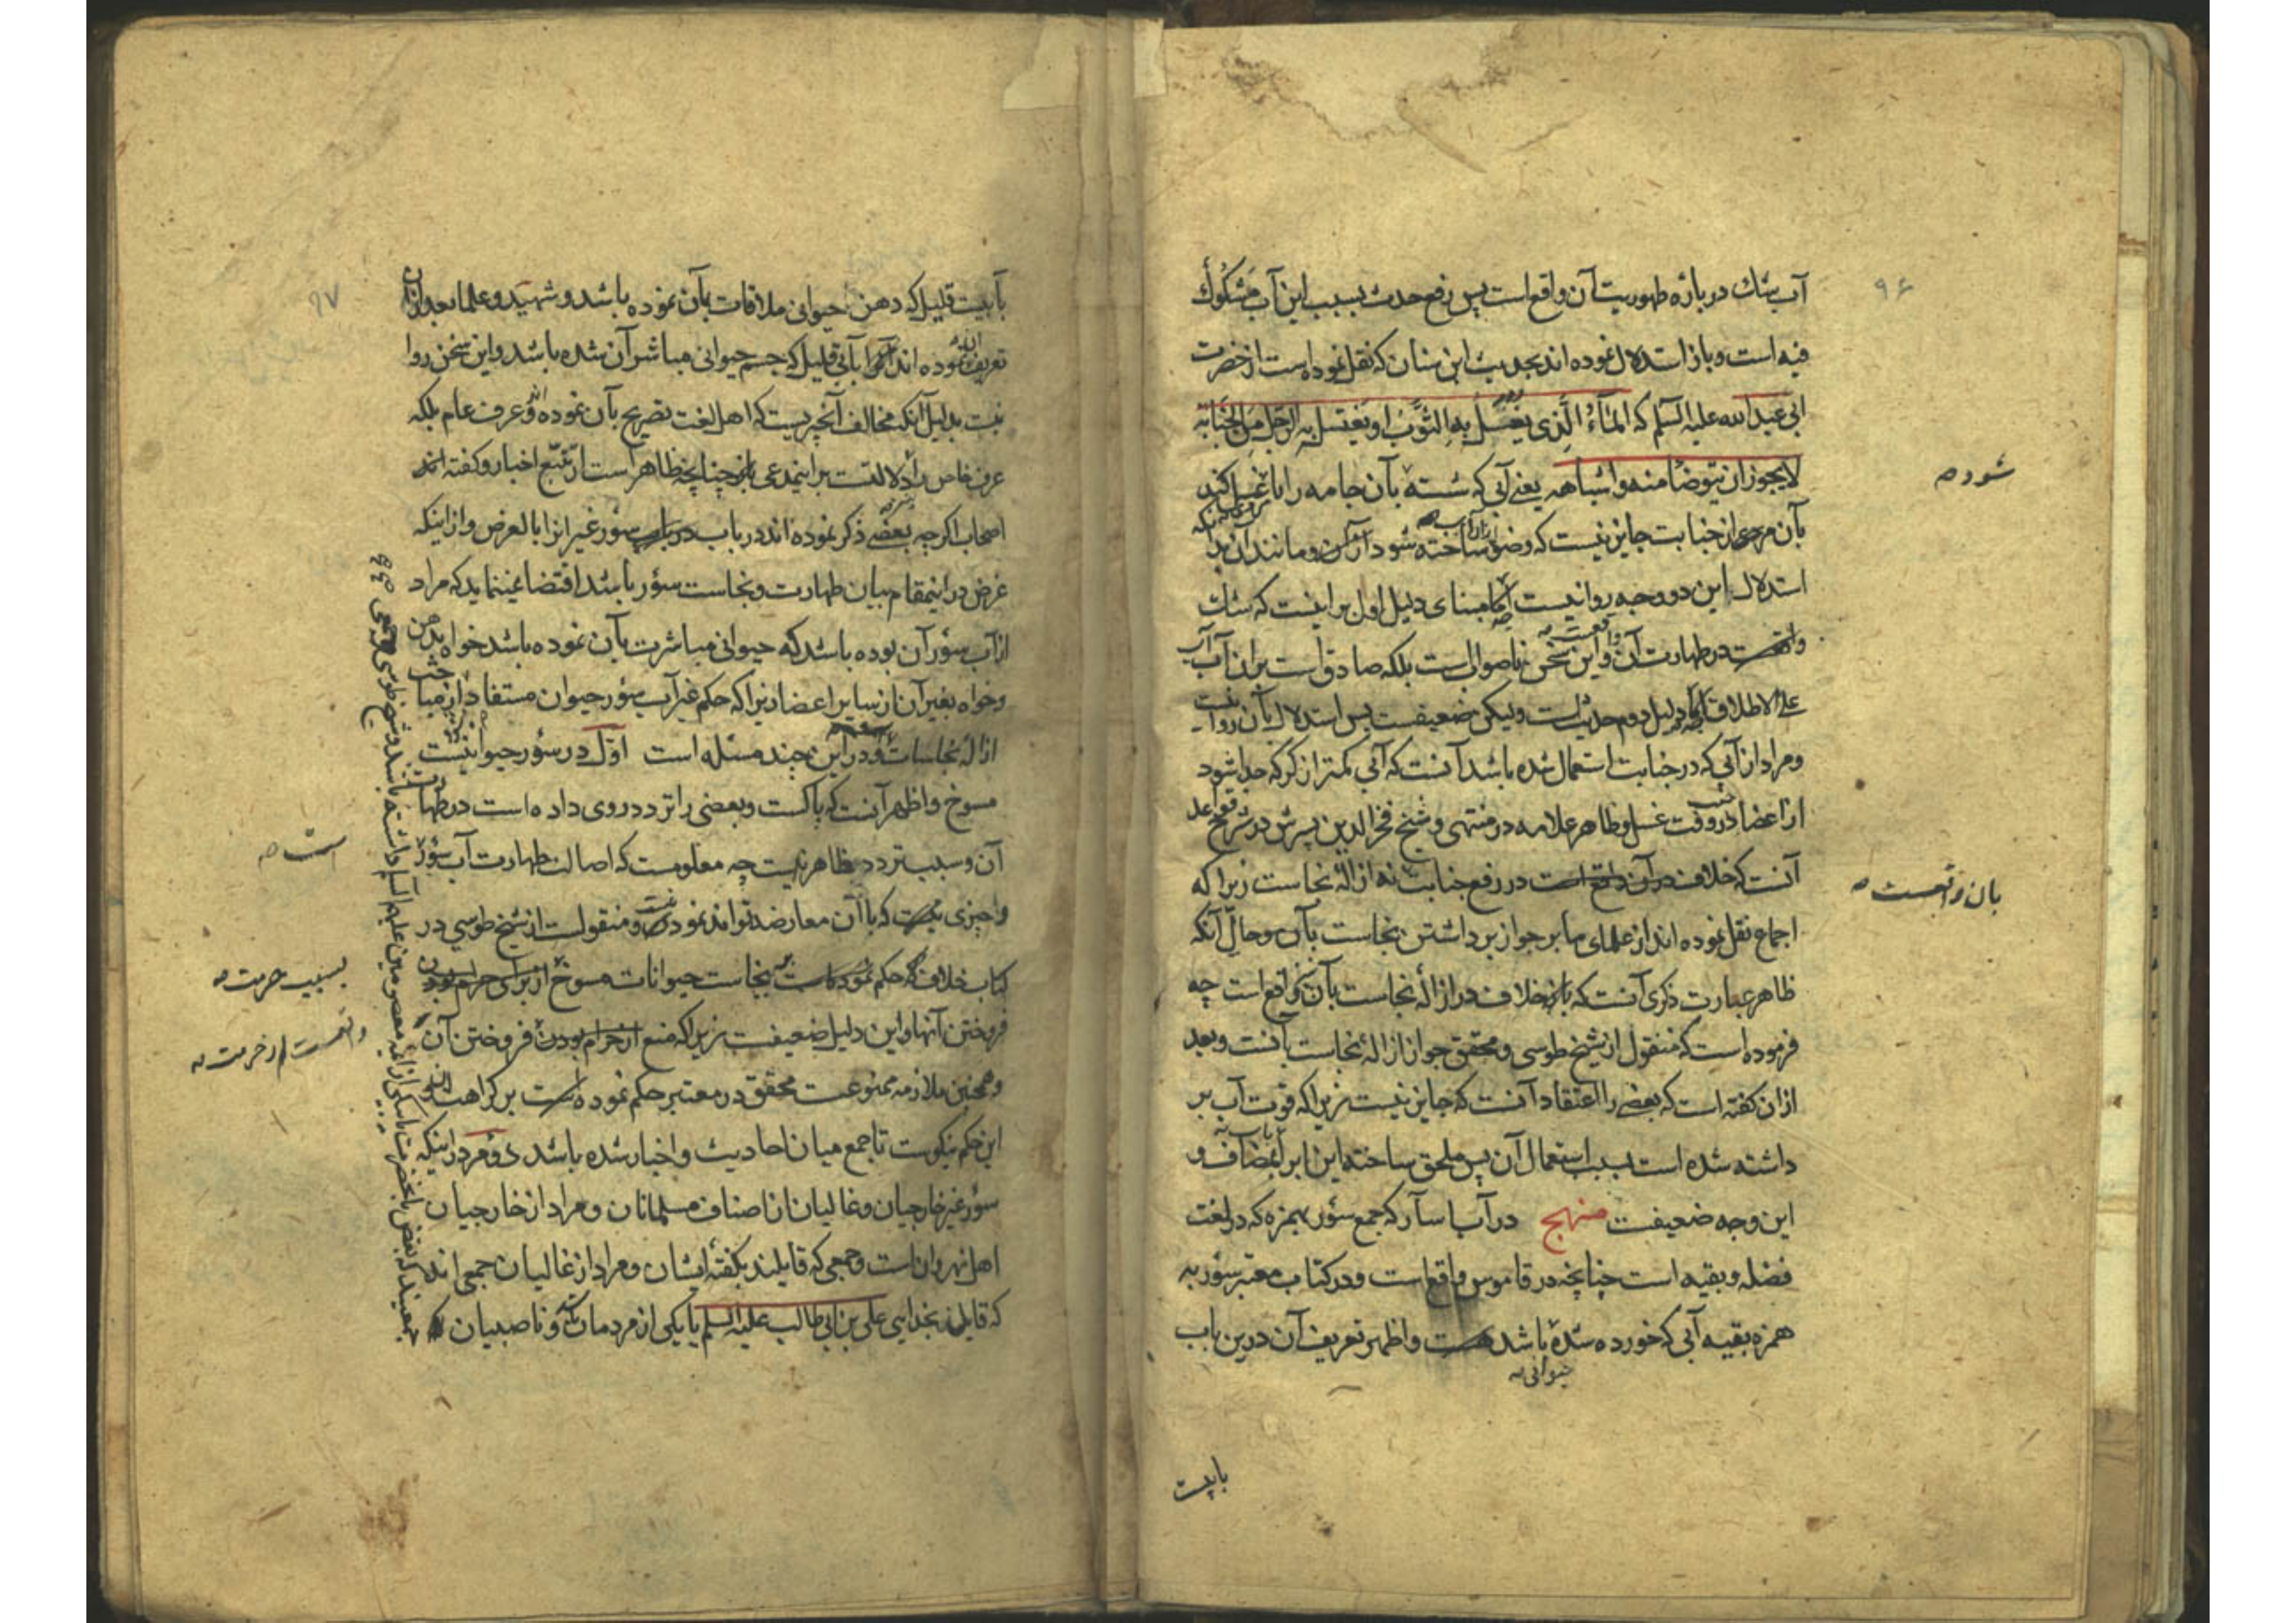 ۹۶
آب شك در بازه طهوریت آن واقع است پس رفع حدث بسبب این آب مشكوك
فیه است و باز استدلال نموده اند بحدیث ابن سنان که نقل نموده است از حضرت
ابی عبدالله علیه السلم که الماء الذی یغسل به الثوب او یغتسل به الرجل من الجنابة
لا یجوز ان یتوضا منه و اشباهه یعنی آبی که شسته بآن جامه را یا غسل کند
شود صه
بآن مردی از جنابت جایز نیست که وضو ساخته شود از آن و مانند آن
استدلال این دو وجه روا نیست اما مبنای دلیل اول بر اینست که شك
در طهارت آن و این سخن ناصوابست بلکه صادق است بران آب
علی الاطلاق اما دلیل دوم حدیث است ولیکن ضعیفست پس استدلال بآن روا نیست
و مراد از آبی که در جنابت استعمال شده باشد آنست که آبی کمتر از کر که جدا شود
از اعضا در وقت غسل و ظاهر علامه در منتهی و شیخ فخرالدین پسرش در شرح قواعد
آنست که خلاف در آن واقع است در رفع جنابت نه ازالهٔ نجاست زیرا که
بآن واقعست صه
اجماع نقل نموده اند از علمای ما بر جواز برداشتن نجاست بآن و حال آنکه
ظاهر عبارت ذکری آنست که باز خلاف در ازالهٔ نجاست بآن واقع است چه
فرموده است که منقول از شیخ طوسی و محقق جواز ازالهٔ نجاست بآنست و بعد
ازان گفته است که بعضی را اعتقاد آنست که جایز نیست زیرا که قوت آب بر
داشته شده است بسبب استعمال آن پس ملحق ساخته این را بمضاف و
این وجه ضعیفست منهج در آب اسآر که جمع سؤر بهمزه که در لغت
فضله و بقیه است چنانچه در قاموس واقع است و در کتاب معتبر سؤر به
همزه بقیه آبی که خورده شده باشد و اظهر تعریف آن درین باب
حیوانی
بابیست
۹۷
بآبیست قلیل که دهن حیوانی ملاقات بآن نموده باشد و شهید و علما بعد ازان
تعریف نموده اند بآبی قلیل که جسم حیوانی مباشر آن شده باشد و این سخن روا
نیست بدلیل آنکه مخالف آنچیزیست که اهل لغت تصریح بآن نموده و عرف عام بلکه
عرف خاص را دلالتست بر اینمدعی چنانچه ظاهر است از تتبع اخبار و گفته اند
اصحاب اگرچه بعضی ذکر نموده اند در باب سؤر غیر انرا بالعرض و از اینکه
غرض در اینمقام بیان طهارت و نجاست سؤر باشد اقتضا نمینماید که مراد
از آب سؤر آن بوده باشد که حیوانی مباشرت بآن نموده باشد خواه بدهن
و خواه بغیر آن از سایر اعضا زیرا که حکم غیر آب سؤر حیوان مستفاد از مباحث
ازاله نجاسات و در این چند مسئله است اوّل در سؤر حیوانیست
مسوخ و اظهر آنست که پاکست و بعضی را تردد روی داده است در طهارت
آن و سبب تردد ظاهر نیست چه معلومست که اصالت طهارت آب سؤر
است صه
و چیزی نیست که با آن معارضه تواند نمود و منقولست از شیخ طوسی در
کتاب خلاف که حکم نموده است بنجاست حیوانات مسوخ از برای حرام بودن
بسبب حرمت صه
فروختن آنها و این دلیل ضعیفست زیرا که منع از حرام بودن فروختن آن
و همچنین ملازمه ممنوعست محقق در معتبر حکم نموده است بر کراهت
این حکم نیکوست تا جمع میان احادیث و اخبار شده باشد دوم در اینکه
سؤر غیر خارجیان و غالیان از اصناف مسلمانان و مراد از خارجیان
اهل نهروان است و جمعی که قایلند بگفتهٔ ایشان و مراد از غالیان جمعی اند
که قایلند بخدایی علی بن ابی طالب علیه السلم یا یکی از مردمان و ناصبیان
جمعیند که بغض بآنحضرت یا یکی از ائمه معصومین علیهم السلم داشته باشند و شیخ طوسی